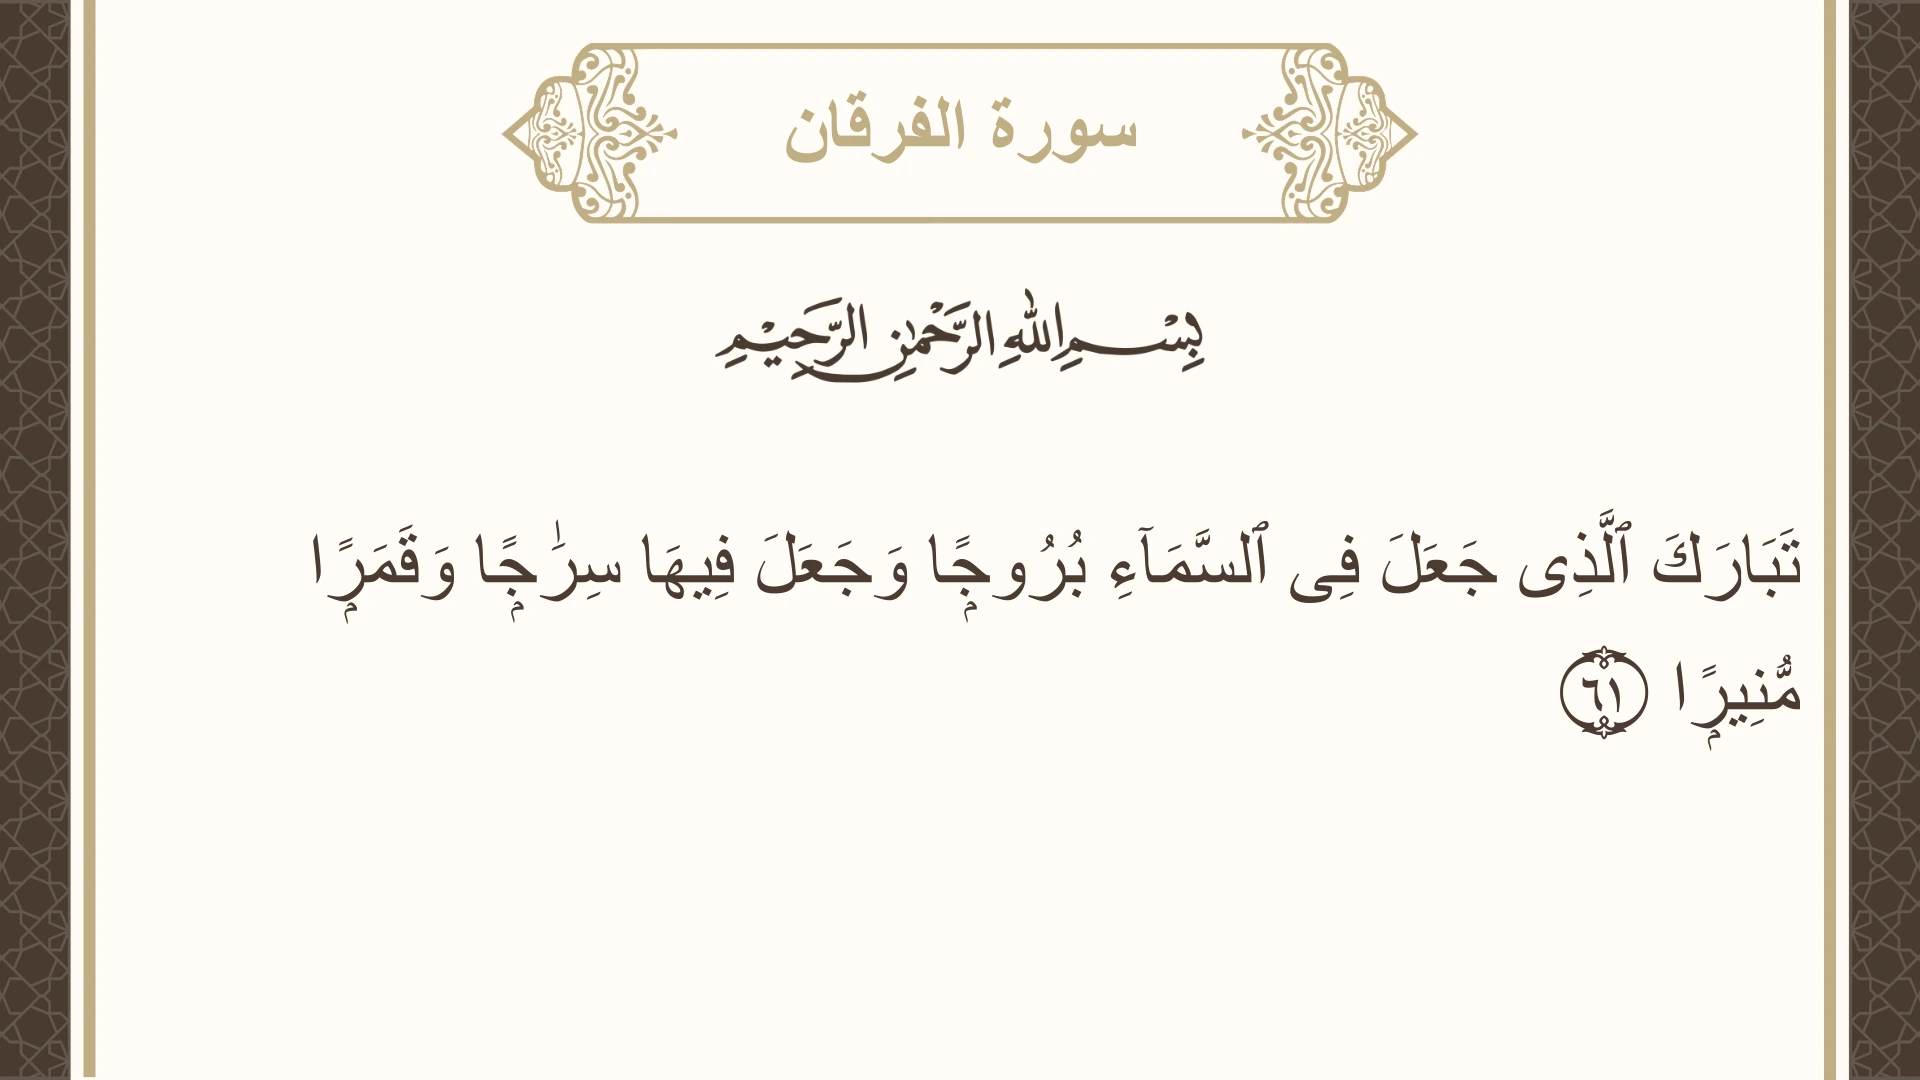 سورة الفرقان
بِسْمِ اللهِ الرَّحْمٰنِ الرَّحِيْمِ
تَبَارَكَ ٱلَّذِى جَعَلَ فِى ٱلسَّمَآءِ بُرُوجًۭا وَجَعَلَ فِيهَا سِرَٰجًۭا وَقَمَرًۭا
مُّنِيرًۭا ٦١